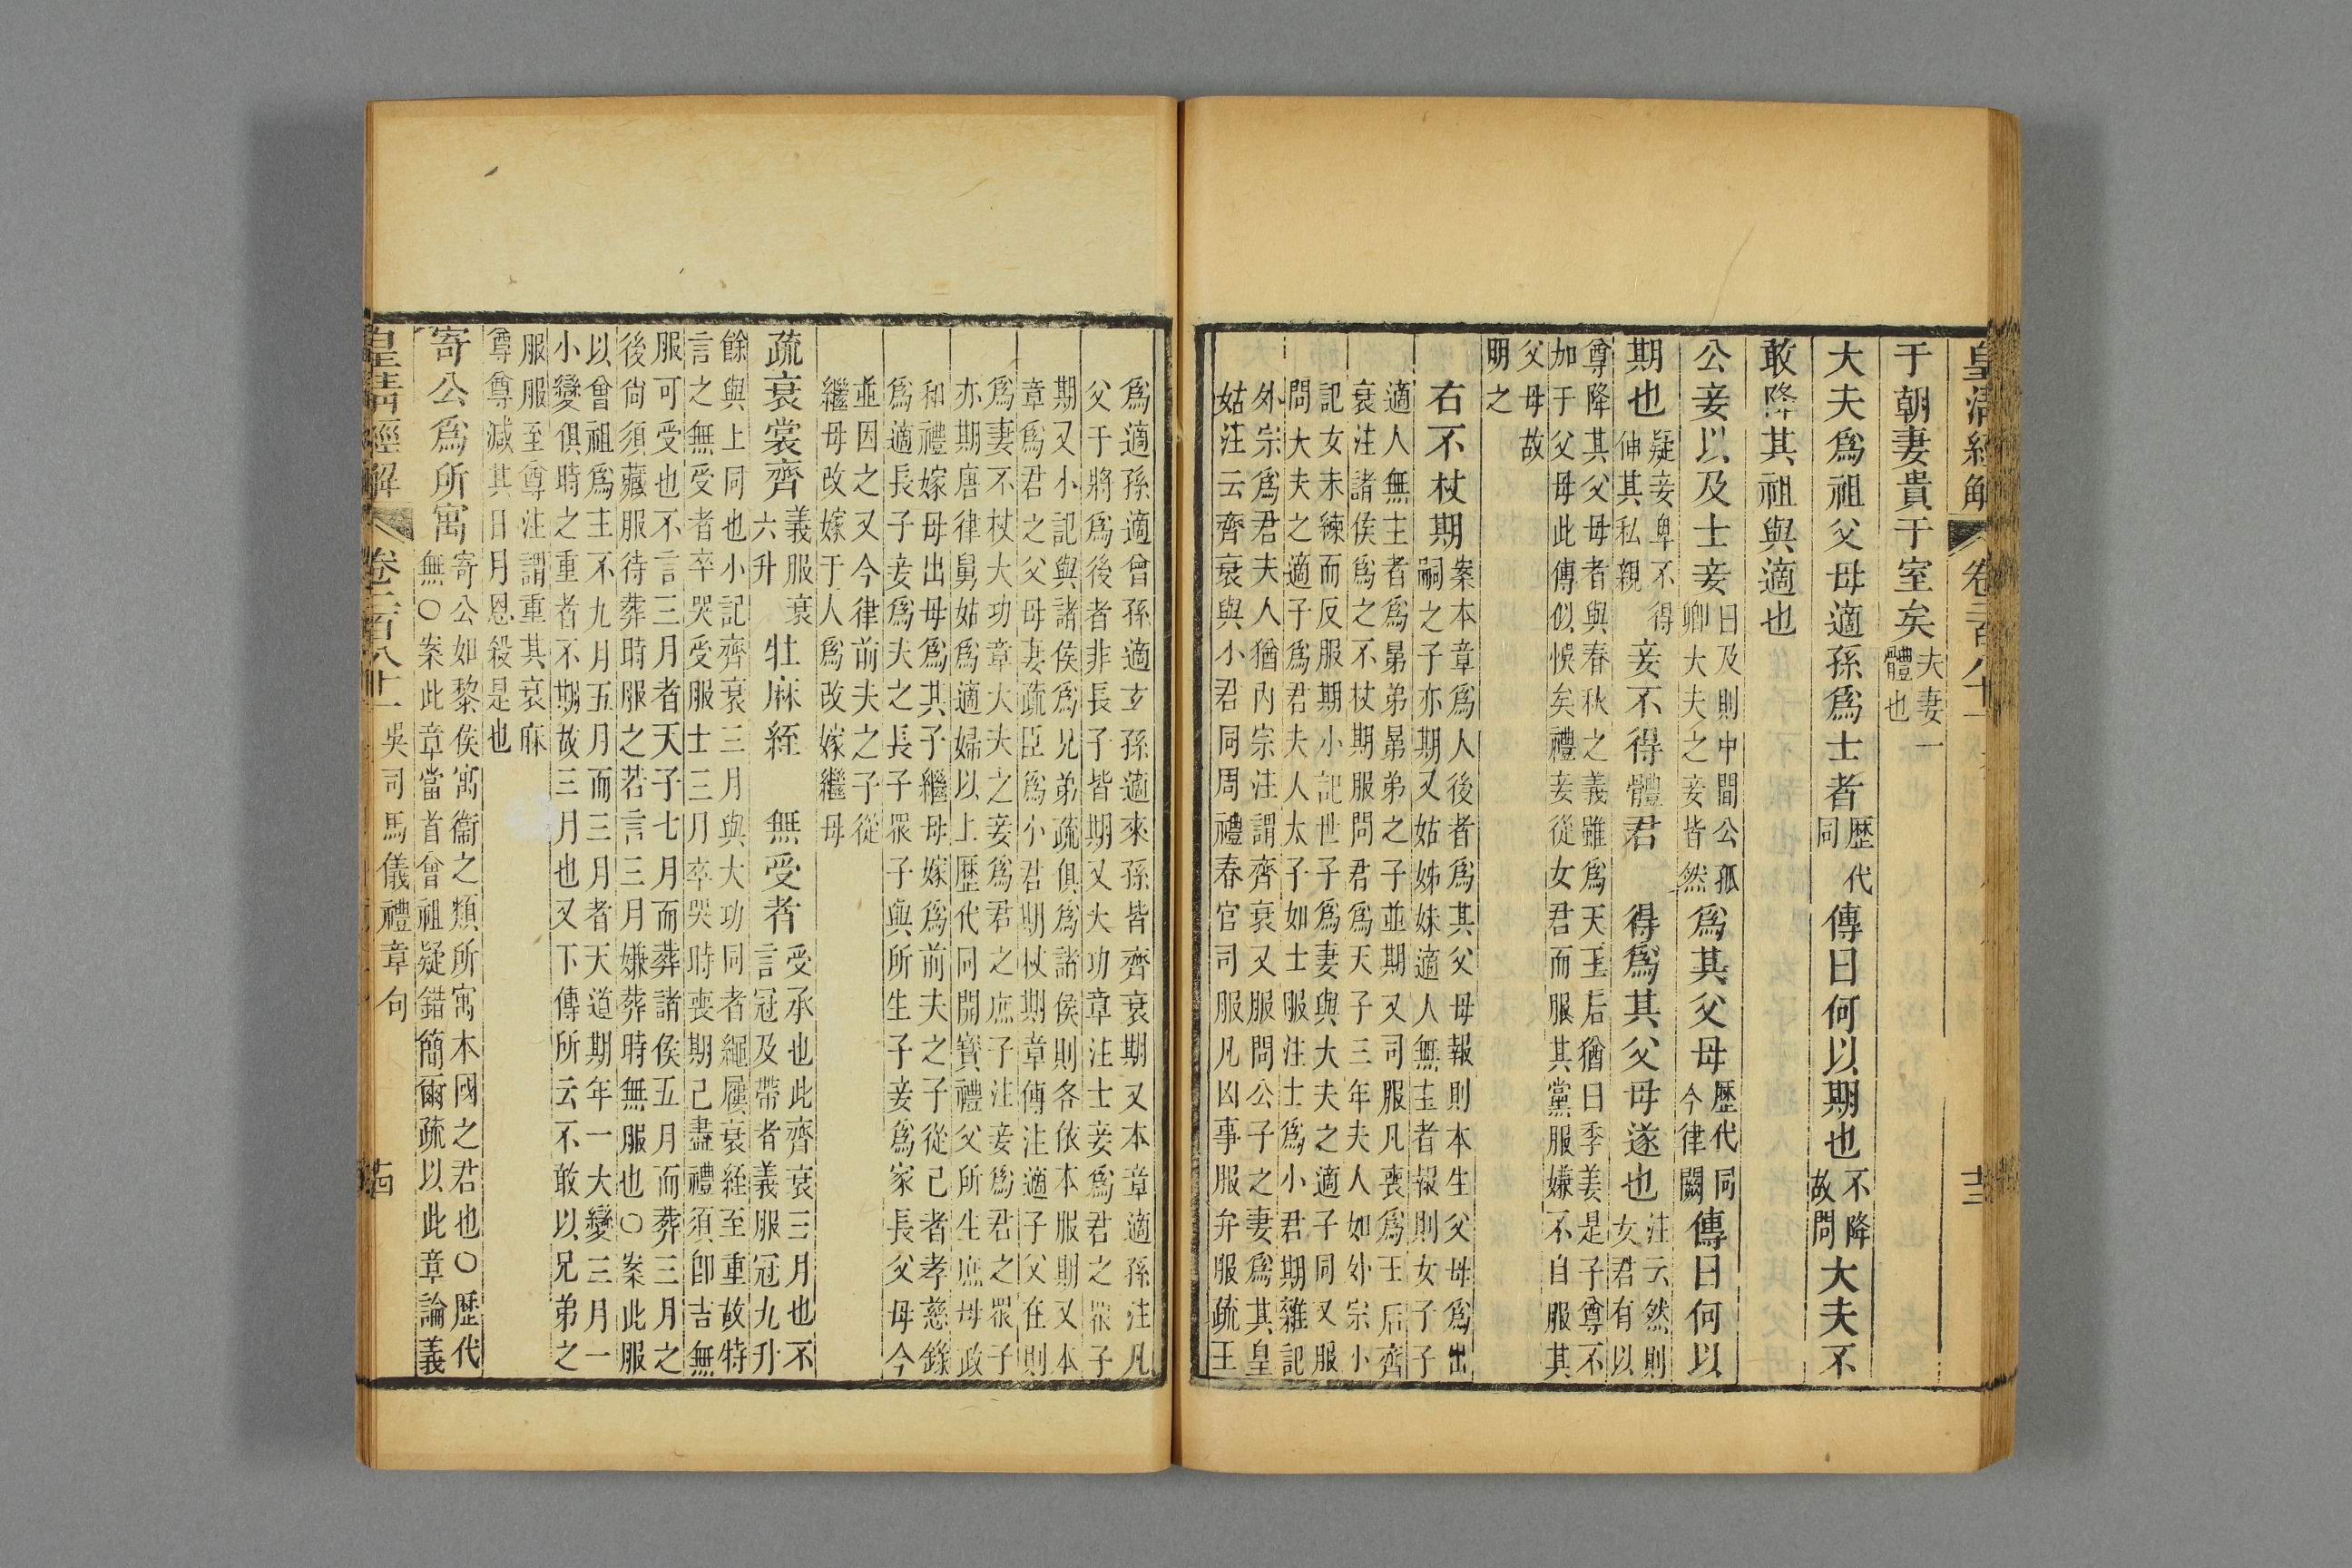 皇清經解 卷二百八十一
于朝妻貴于室矣夫妻一
體也
大夫爲祖父母適孫爲士者歷代
同傳曰何以期也不降
故問大夫不
敢降其祖與適也
公妾以及士妾曰及則中間公孤
卿大夫之妾皆然爲其父母歷代同
今律闕傳曰何以
期也疑妾卑不得
伸其私親妾不得體君 得爲其父母遂也注云然則
女君有以
尊降其父母者與春秋之義雖爲天王后猶曰季姜是子尊不
加于父母此傳似悞矣禮妾從女君而服其黨服嫌不自服其
父母故
明之
右不杖期案本章爲人後者爲其父母報則本生父母爲出
嗣之子亦期又姑姊妹適人無主者報則女子子
適人無主者爲昴弟昴弟之子並期又司服凡喪爲王后齊
衰注諸侯爲之不杖期服問君爲天子三年夫人如外宗小
記女未練而反服期小記世子爲妻與大夫之適子同又服
問大夫之適子爲君夫人太子如士服注士爲小君期雜記
外宗爲君夫人猶內宗注謂齊衰又服問公子之妻爲其皇
姑注云齊衰與小君同周禮春官司服凡凶事服弁服疏王
爲適孫適曾孫適玄孫適來孫皆齊衰期又本章適孫注凡
父于將爲後者非長子皆期又大功章注士妾爲君之衆子
期又小記與諸侯爲兄弟疏俱爲諸侯則各依本服期又本
章爲君之父母妻疏臣爲小君期杖期章傳注適子父在則
爲妻不杖大功章大夫之妾爲君之庶子注妾爲君之衆子
亦期唐律舅姑爲適婦以上歷代同開寶禮父所生庶母政
和禮嫁母出母爲其子繼母嫁爲前夫之子從己者孝慈錄
爲適長子妾爲夫之長子衆子與所生子妾爲家長父母今
並因之又今律前夫之子從
繼母改嫁于人爲改嫁繼母
疏衰裳齊義服衰
六升牡麻絰 無受者受承也此齊衰三月也不
言冠及帶者義服冠九升
餘與上同也小記齊衰三月與大功同者繩屨衰絰至重故特
言之無受者卒哭受服士三月卒哭時喪期己盡禮須卽吉無
服可受也不言三月者天子七月而葬諸侯五月而葬三月之
後尙須藏服待葬時服之若言三月嫌葬時無服也○案此服
以曾祖爲主不九月五月而三月者天道期年一大變三月一
小變俱時之重者不期故三月也又下傳所云不敢以兄弟之
服服至尊注謂重其衰麻
尊尊減其日月恩殺是也
寄公爲所寓寄公如黎侯寓衞之類所寓本國之君也○歷代
無○案此章當首曾祖疑錯簡爾疏以此章論義
皇清經解 卷二百八十一 吳司馬儀禮章句